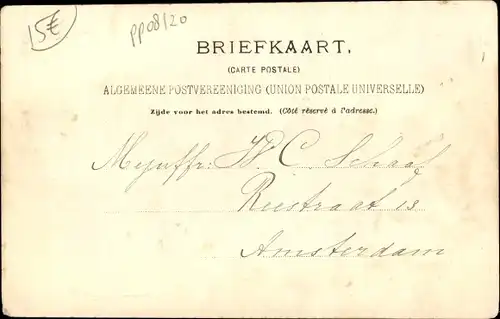 15€
PP08/20
BRIEFKAART.
(CARTE POSTALE)
ALGEMEENE POSTVEREENIGING (UNION POSTALE UNIVERSELLE)
Zijde voor het adres bestemd. (Côté réservé à l'adresse.)
Mejuffr. C. Schaaf
Reestraat 13
Amsterdam